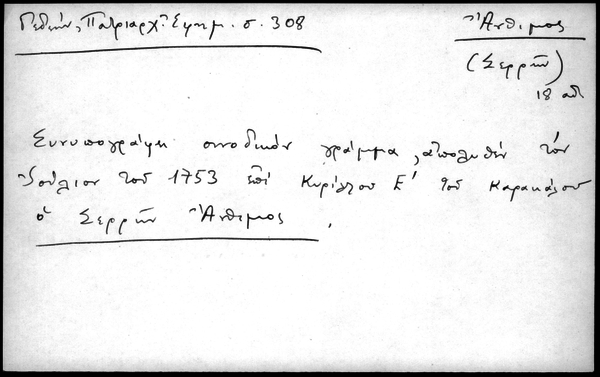 Γεδεών, Πατριαρχ. Εφημ. σ. 308
Ἄνθιμος
(Σερρῶν)
18 αἰ.
Συνυπογράφει συνοδικὸν γράμμα, ἀπολυθὲν τὸν
Ἰούλιον τοῦ 1753 ἐπὶ Κυρίλλου Ε' τοῦ Καρακάλου
ὁ Σερρῶν Ἄνθιμος.